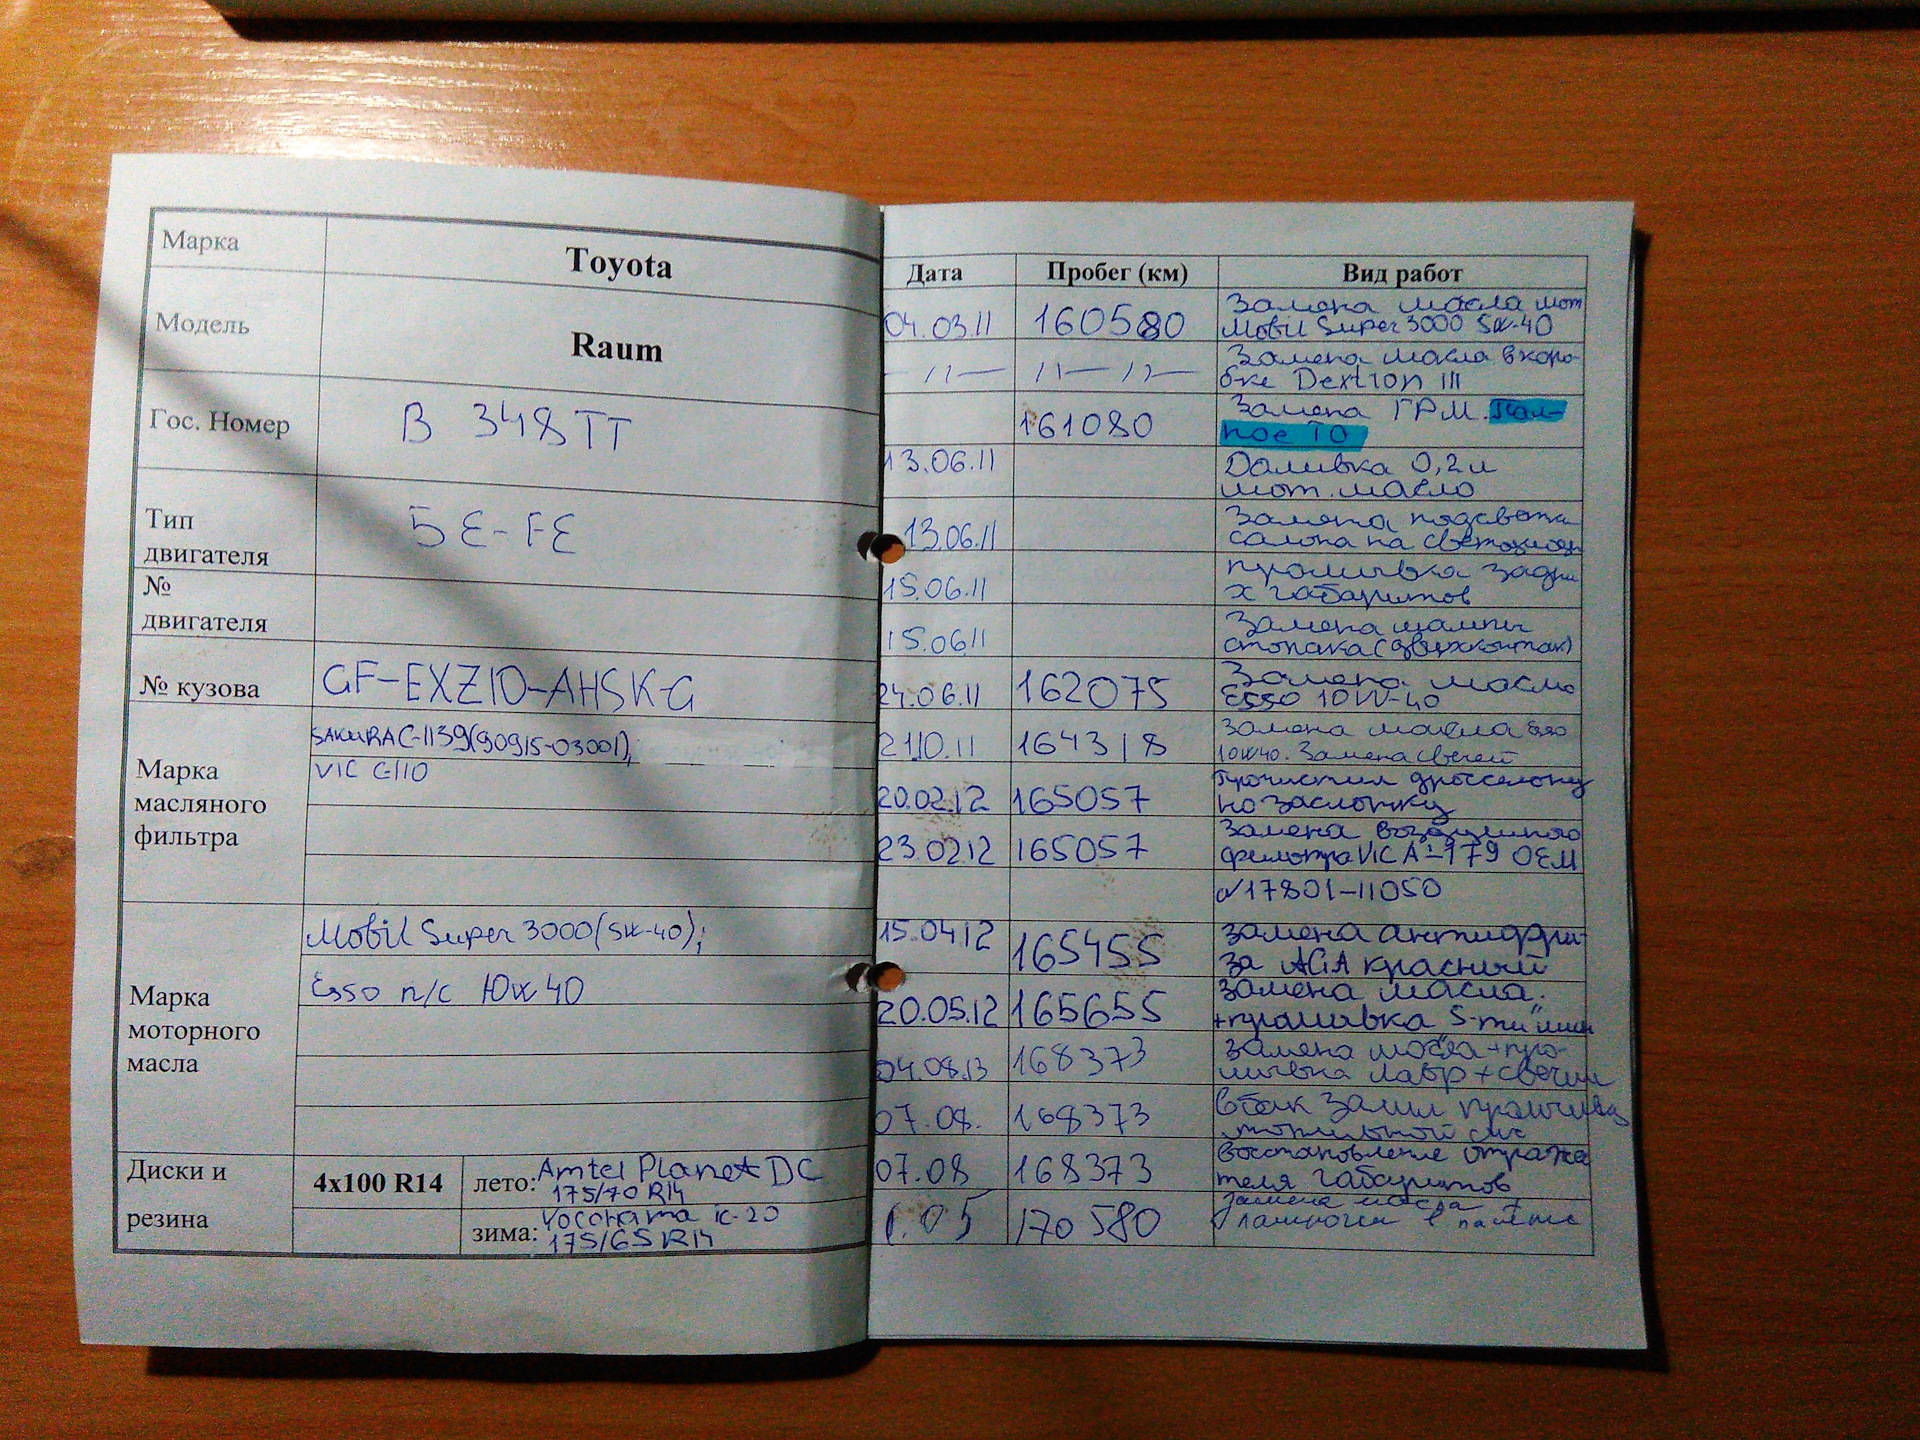 Марка
Toyota
Модель
Raum
Гос. Номер
В 348 ТТ
Тип
двигателя
5E-FE
№
двигателя
№ кузова
GF-EXZ10-AHSK-G
Марка
масляного
фильтра
SAKURA C-1139(90915-03001),
VIC C-110
Марка
моторного
масла
Mobil Super 3000(5W-40);
Esso п/с 10w40
Диски и
резина
4x100 R14
лето: Amtel Planet DC
175/70 R14
зима: Yocohama IC-20
175/65 R14
Дата Пробег (км) Вид работ
04.03.11 160580 Замена масла мот
Mobil Super 3000 5W-40
-11- 11- 11- Замена масла в коро-
бке Dextron III
161080 Замена ГРМ. Пол-
ное ТО
13.06.11 Доливка 0,2 л
мот. масло
13.06.11 Замена подсветки
салона на светодиод
15.06.11 задни
х габаритов
15.06.11 Замена лампы
стопака (двухконтак)
24.06.11 162075 Замена масло
ESSO 10W-40
21.10.11 164318 Замена масла Esso
10W40. Замена свечей
20.02.12 165057 Прочистил дроссельну
ю заслонку
23.02.12 165057 Замена воздушного
фильтра VIC A-179 OEM
17801-11050
15.04.12 165455 Замена антифри-
за AGA красный
20.05.12 165655 Замена масла.
+промывка 5-ти мин
04.08.13 168373 Замена масла + про-
мывка лавр + свечи
07.08. 168373 в бак залил промывку
топливной сис
07.08 168373 Восстановление отража
теля габаритов
.05 170580 Замена масла +
лампочки в